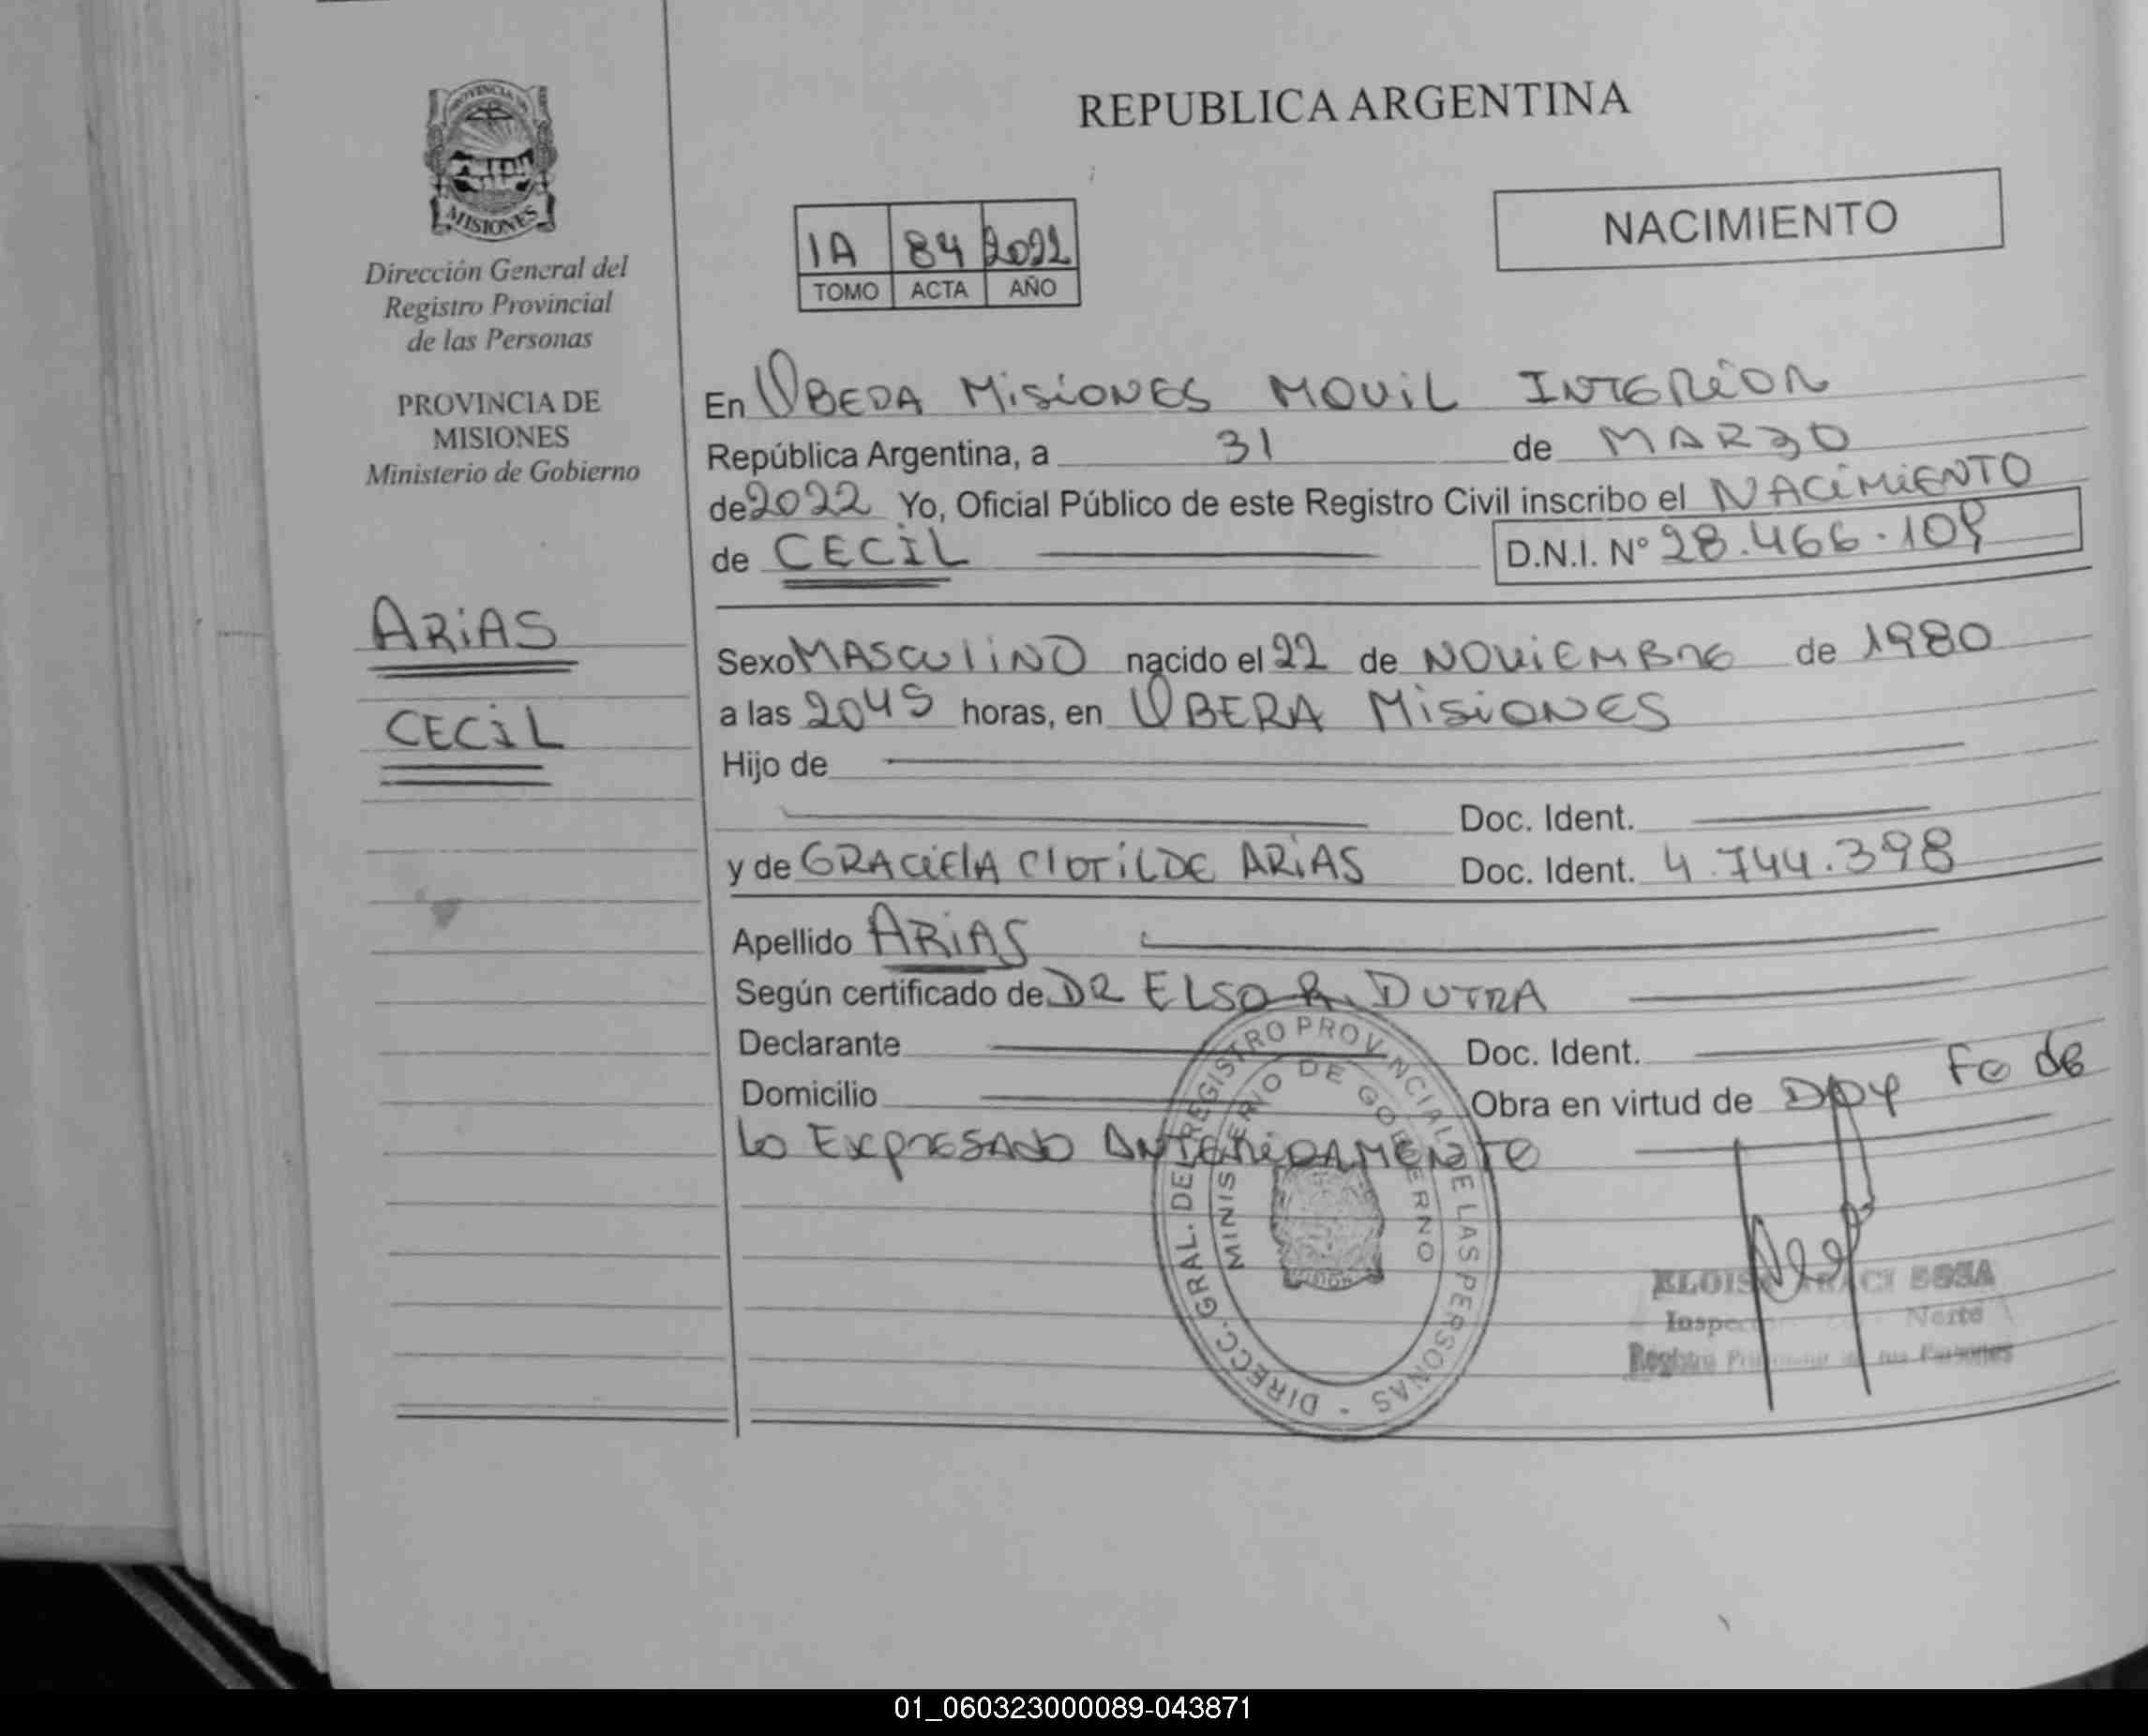 PROVINCIA DE
MISIONES
Dirección General del
Registro Provincial
de las Personas
PROVINCIA DE
MISIONES
Ministerio de Gobierno
ARiAS
CECiL
REPUBLICA ARGENTINA
NACIMIENTO
1A 84 2022
TOMO ACTA AÑO
En OBERA MisiONES MOViL INTERiOR
República Argentina, a 31 de MARZO
de 2022 Yo, Oficial Público de este Registro Civil inscribo el NACiMiENTO
de CECiL D.N.I. Nº 28.466.109
Sexo MASCULiNO nacido el 22 de NOViEMBRE de 1980
a las 2045 horas, en OBERA MiSiONES
Hijo de
Doc. Ident.
y de GRACiElA ClOTiLDE ARiAS Doc. Ident. 4.744.398
Apellido ARiAS
Según certificado de DR ELSO R. DUTRA
Declarante Doc. Ident.
Domicilio Obra en virtud de DOY Fe de
Lo EXPRESADO ANTERiORMENTE
DIRECC. GRAL. DEL REGISTRO PROVINCIAL DE LAS PERSONAS -
MINISTERIO DE GOBIERNO
SOSA
Norte
Registro las Personas
01_060323000089-043871